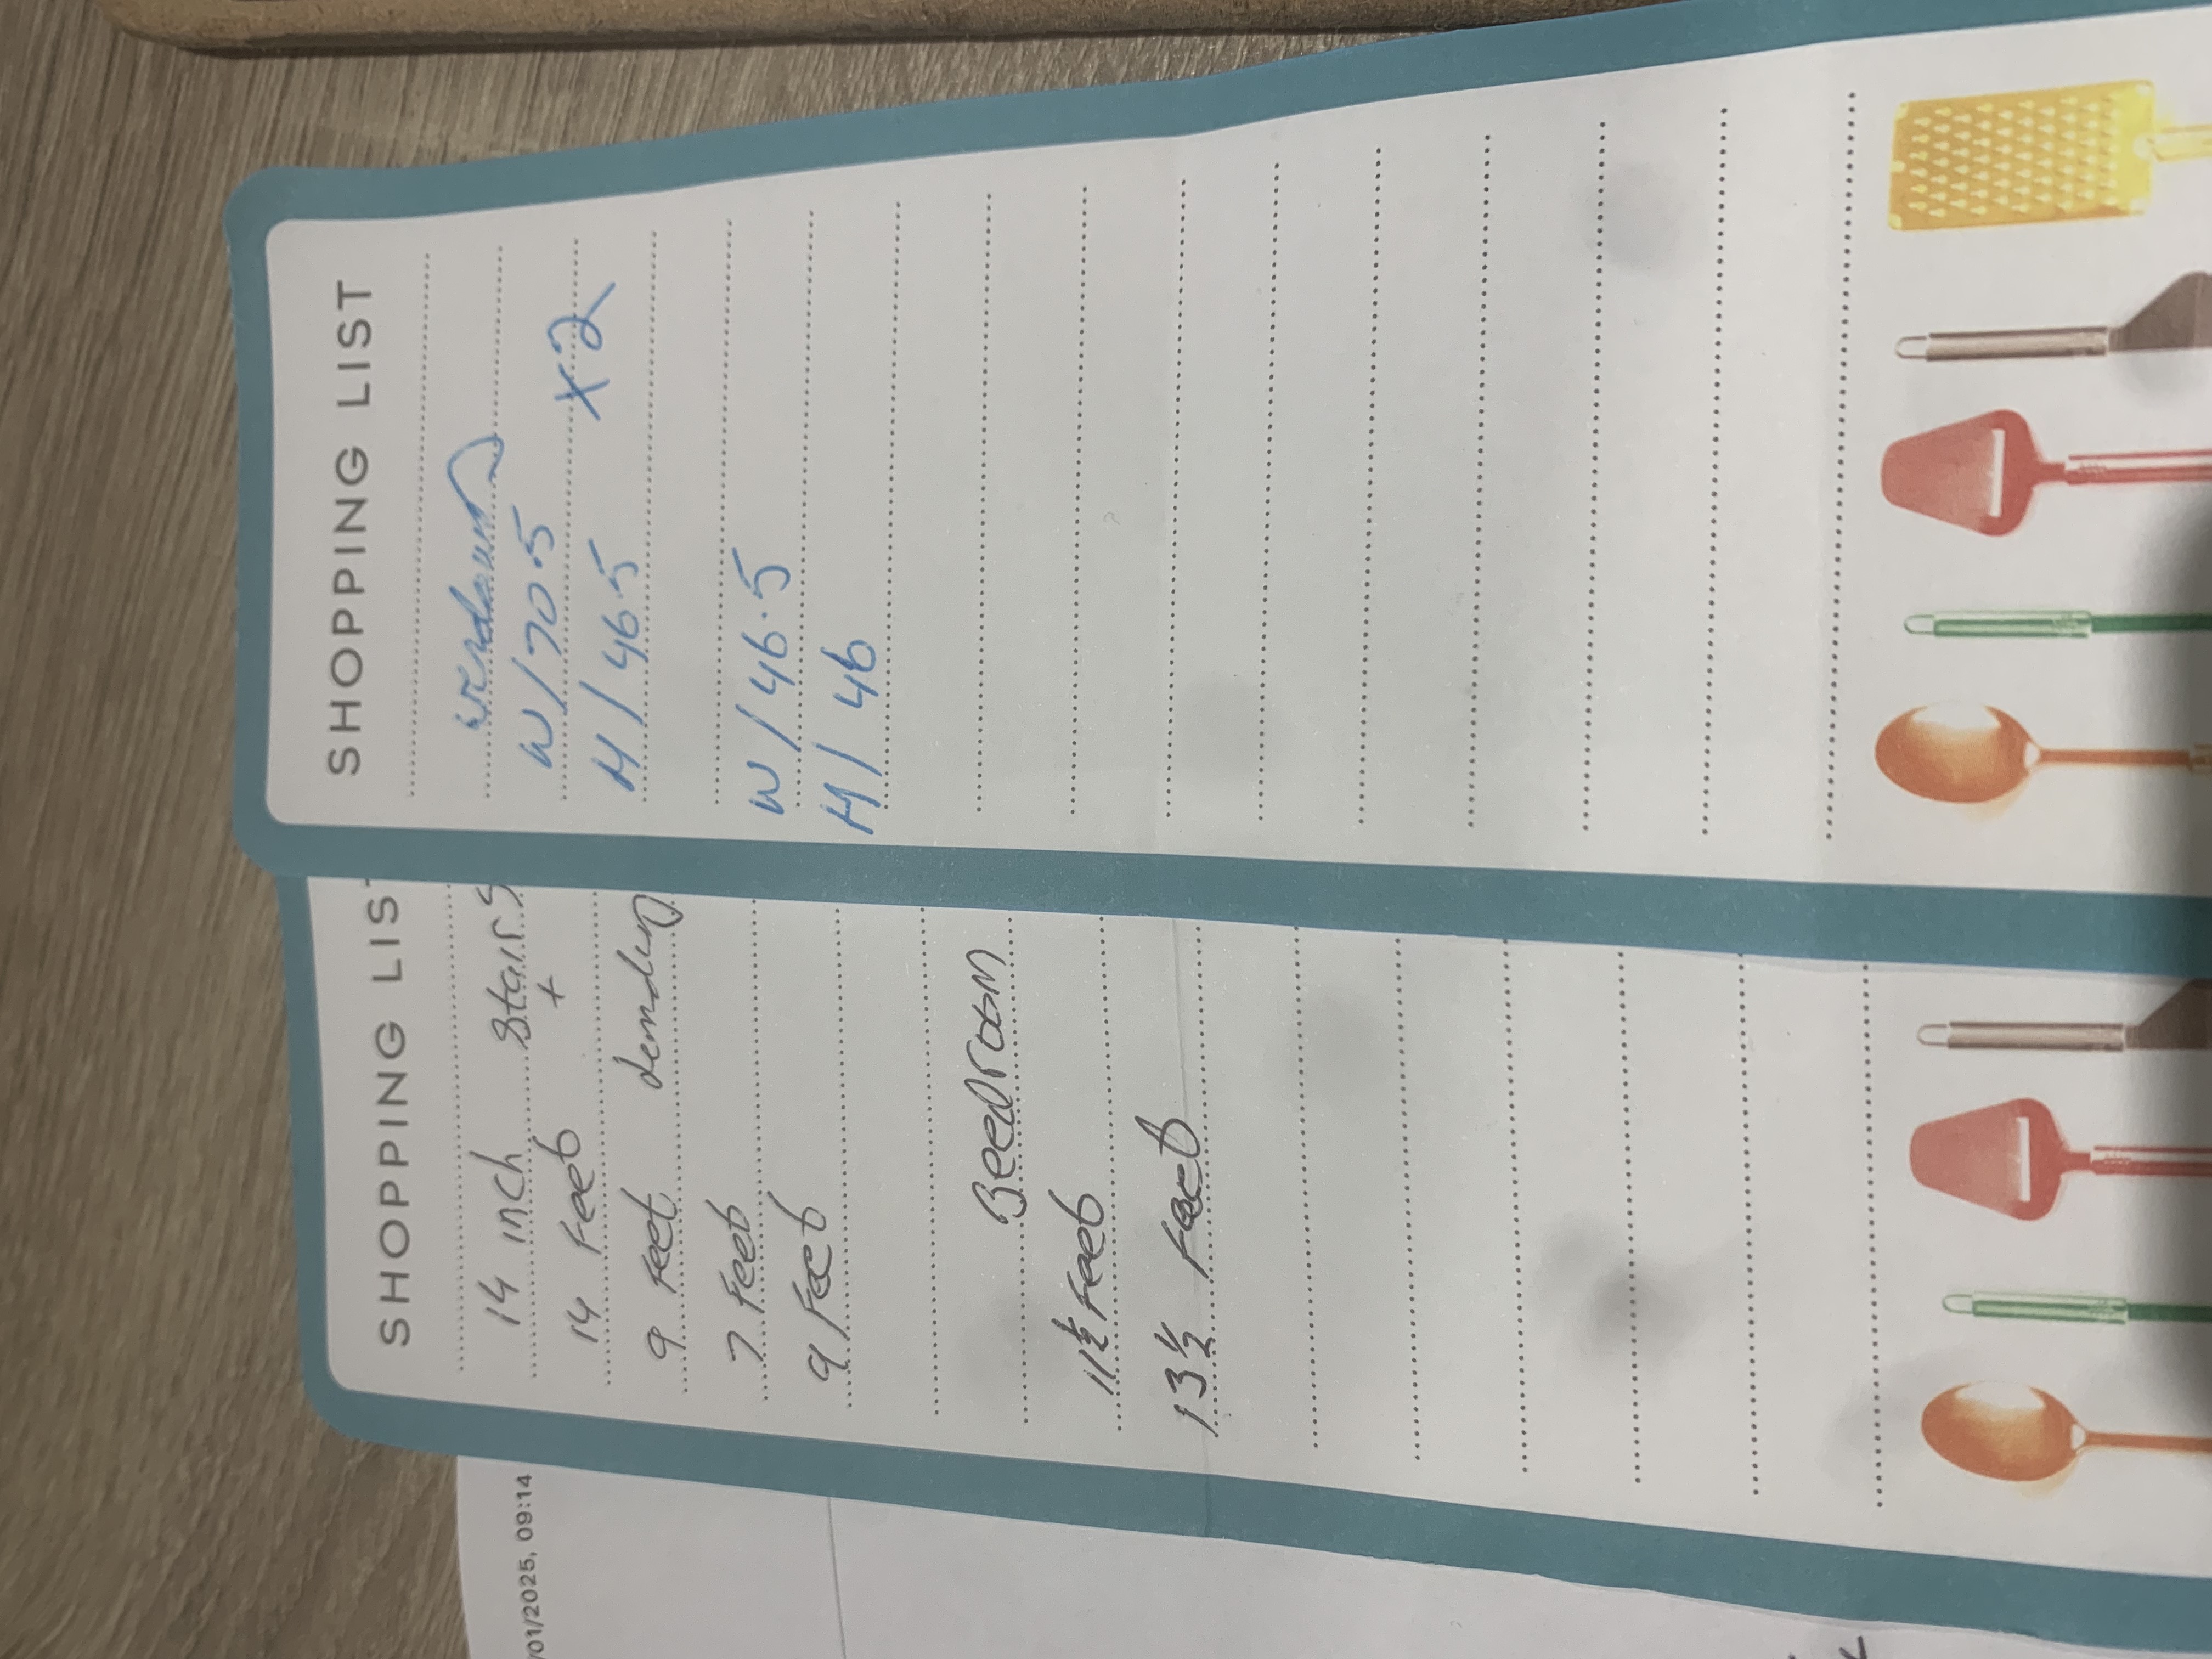 SHOPPING LIST
W/70.5
H/46.5 X2
W/46.5
H/46
SHOPPING LIS
14 inch Stairs
14 Feet +
9 Feet
7 Feet
9 Feet
Bedroom
11½ Feet
13½ Feet
/01/2025, 09:14